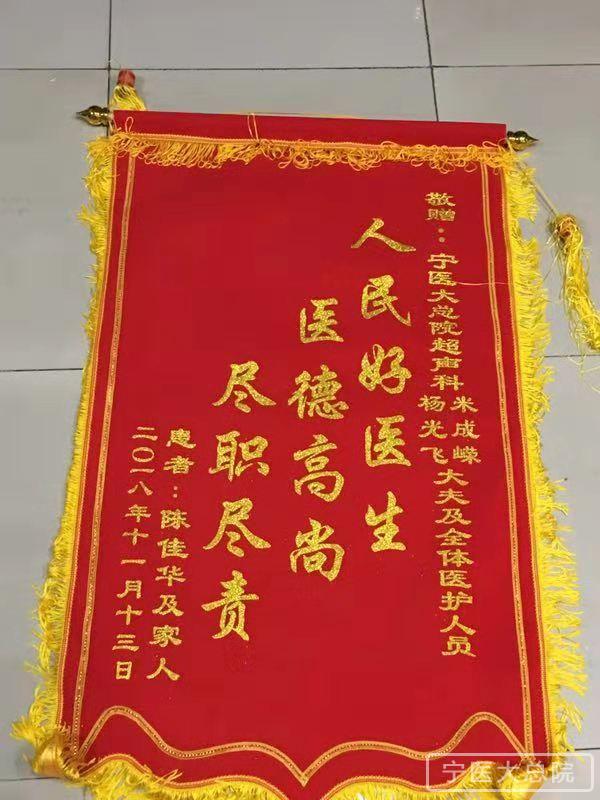 敬赠：宁医大总院超声科米成嵘杨光飞大夫及全体医护人员
人民好医生
医德高尚
尽职尽责
患者：陈佳华及家人
二〇一八年十一月十三日
宁医大总院